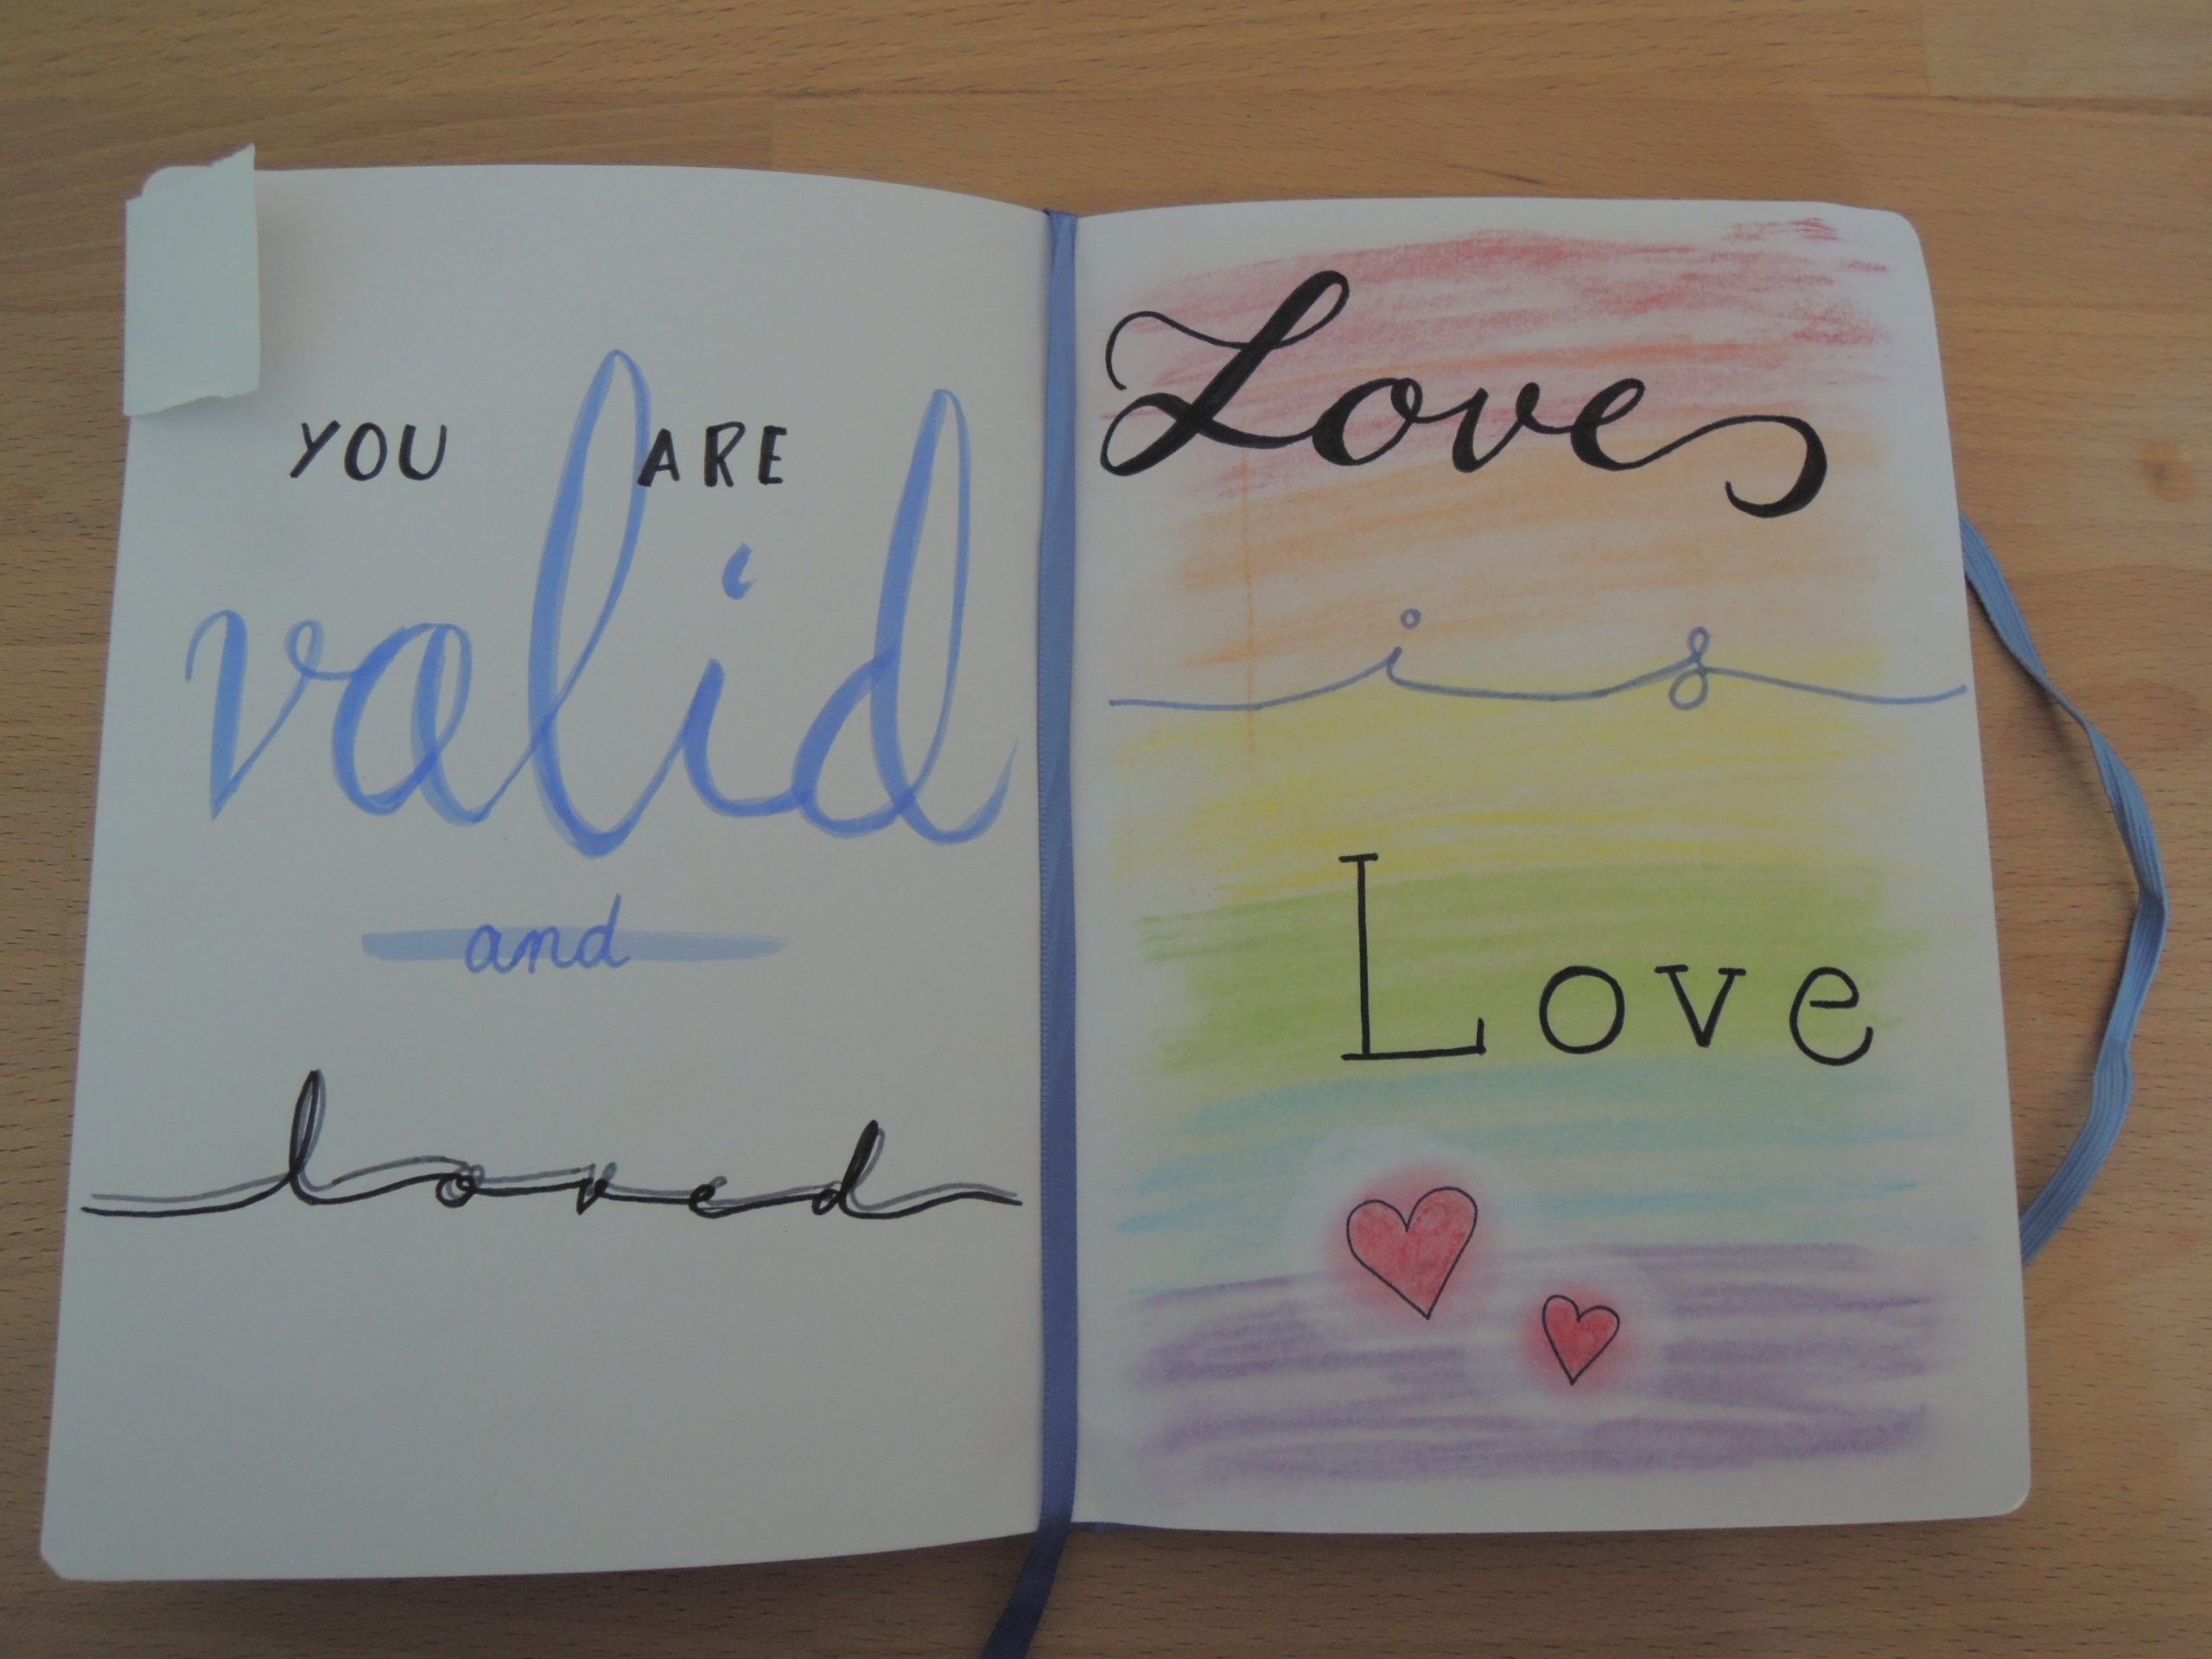 YOU ARE
valid
and
loved
Love
is
Love